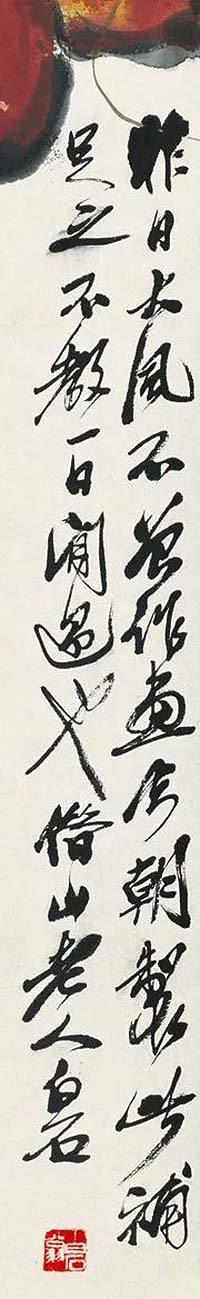 昨日大風不曾作畫今朝製此補
足之不教一日閒過也借山老人白石